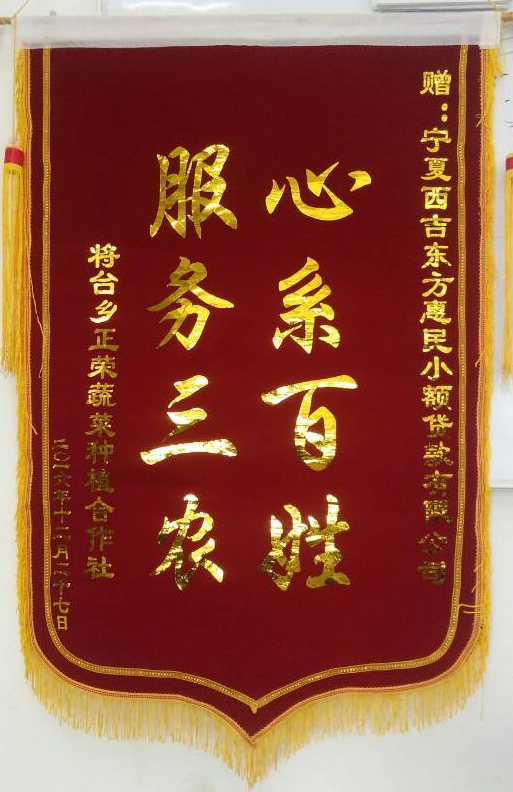 赠：宁夏西吉东方惠民小额贷款有限公司
心系百姓
服务三农
将台乡正荣蔬菜种植合作社
二〇一六年十二月二十七日